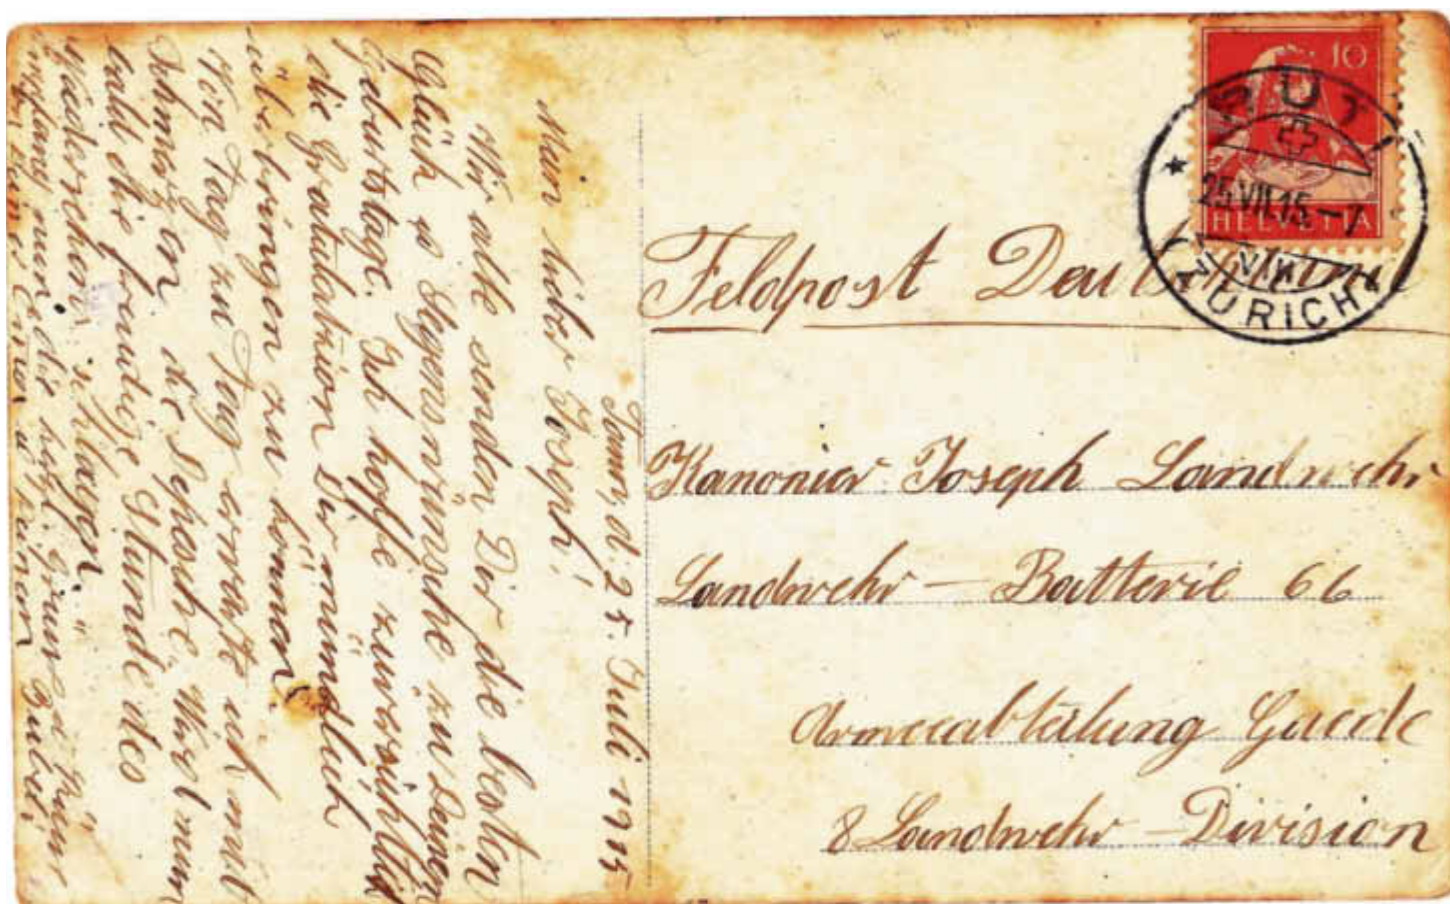 10
HELVETIA
RÜTI
25.VII.15.–7
ZÜRICH
Feldpost Deutschland
Kanonier Joseph Landwehr
Landwehr – Batterie 66
Armeeabteilung Gaede
8 Landwehr – Division
Tann, d. 25. Juli 1915
Mein lieber Joseph!
Wir alle senden Dir die besten
Glück s Segenswünsche zu Deinem
Geburtstage. Ich hoffe zuversichtlich
die Gratulation Dir mündlich
überbringen zu können.
Von Tag zu Tag erwarte ich mit
Schmerzen die Depesche. Wird nun
bald die freudige Stunde des
Wiedersehens schlagen.
nun die herzl. Grüsse u. Küsse